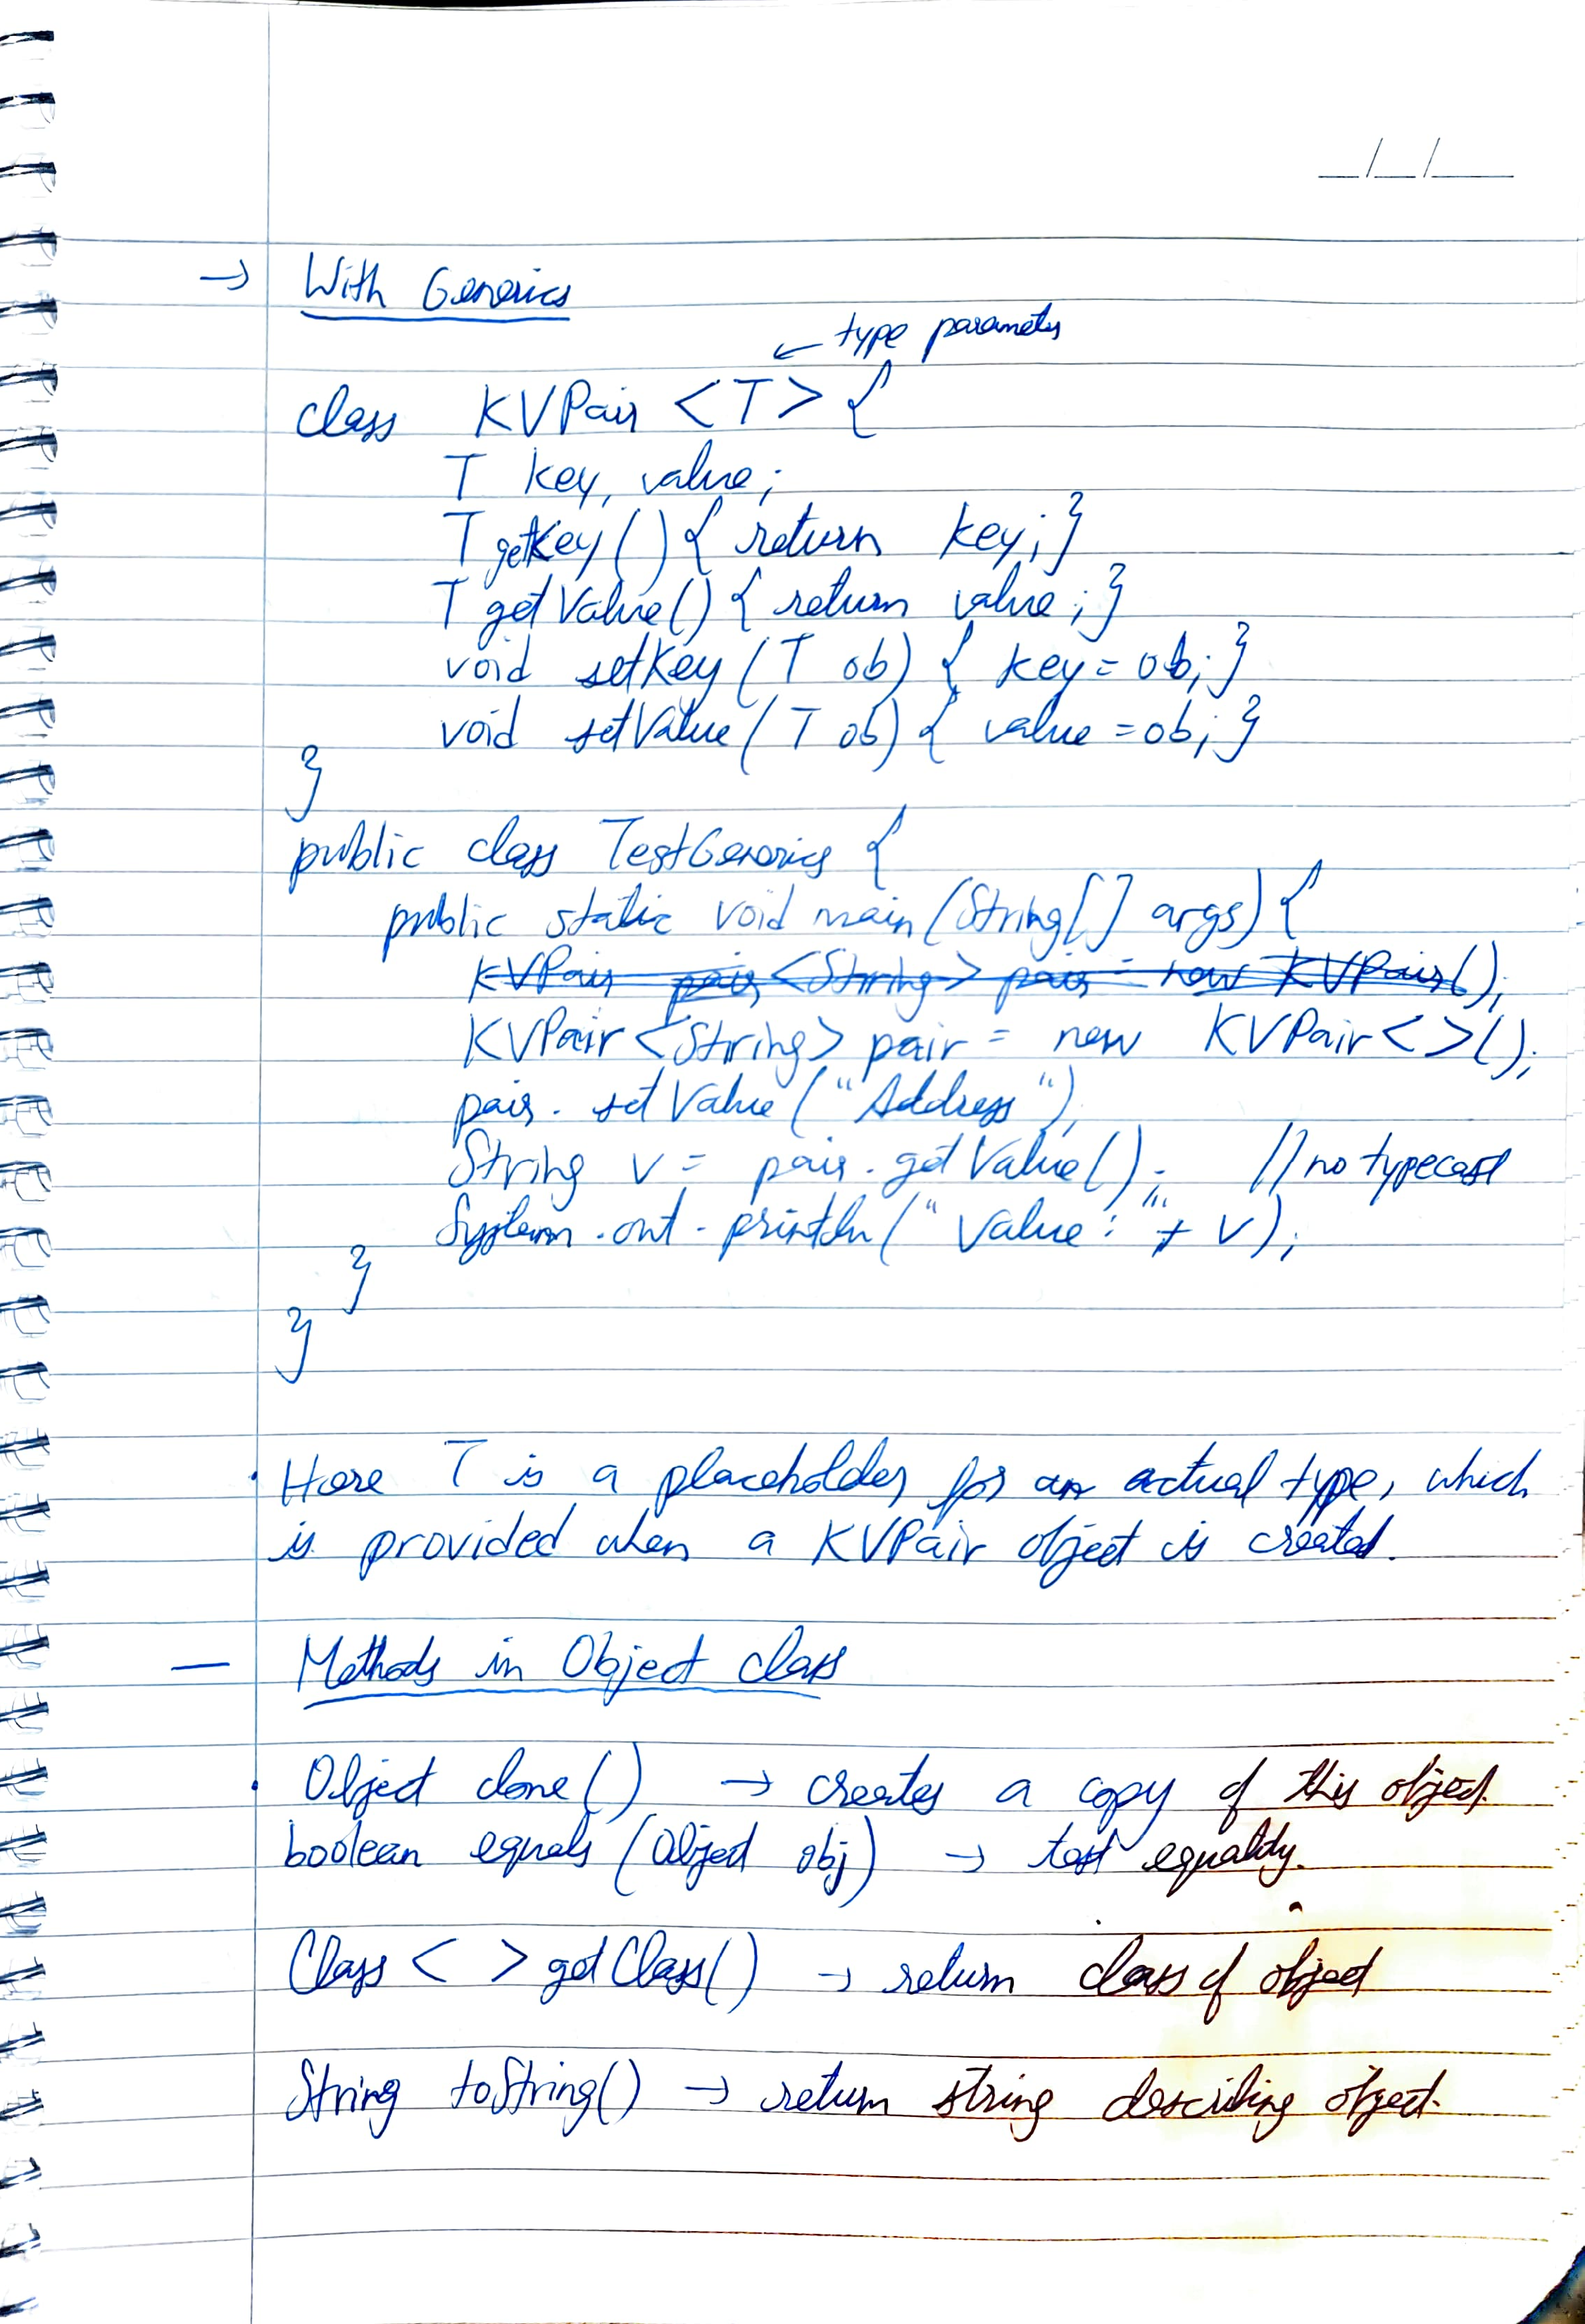 _/_/__
→ With Generics
← type parameter
class KVPair <T> {
T key, value;
T getKey() { return key; }
T getValue() { return value; }
void setKey (T ob) { key = ob; }
void setValue (T ob) { value = ob; }
}
public class TestGenerics {
public static void main (String[] args) {
KVPair pair <String> pair = new KVPair();
KVPair <String> pair = new KVPair<>();
pair. setValue ("Address");
String v = pair. getValue(); // no typecast
System.out.println(" Value: " + v);
}
}
• Here T is a placeholder for an actual type, which
is provided when a KVPair object is created.
— Methods in Object class
• Object clone() → creates a copy of this object.
boolean equals (Object obj) → test equality.
Class < > getClass() → return class of object
String toString() → return string describing object.